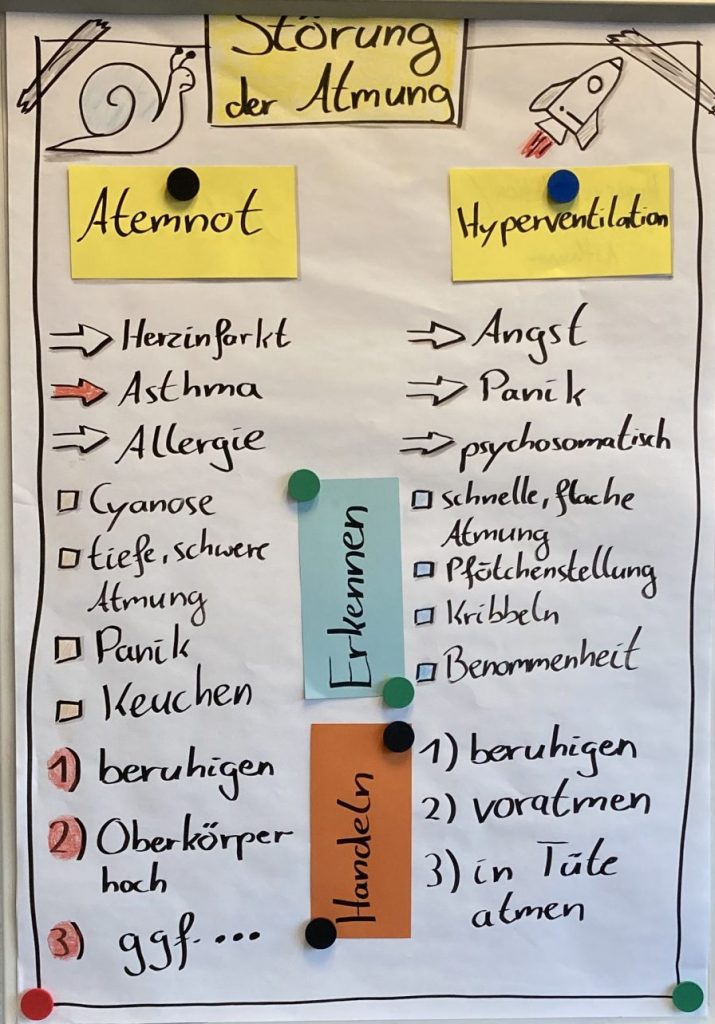 Störung
der Atmung
Atemnot
Herzinfarkt
Asthma
Allergie
Cyanose
tiefe, schwere
Atmung
Panik
Keuchen
1) beruhigen
2) Oberkörper
hoch
3) ggf. ...
Erkennen
Handeln
Hyperventilation
Angst
Panik
psychosomatisch
schnelle, flache
Atmung
Pfötchenstellung
Kribbeln
Benommenheit
1) beruhigen
2) voratmen
3) in Tüte
atmen